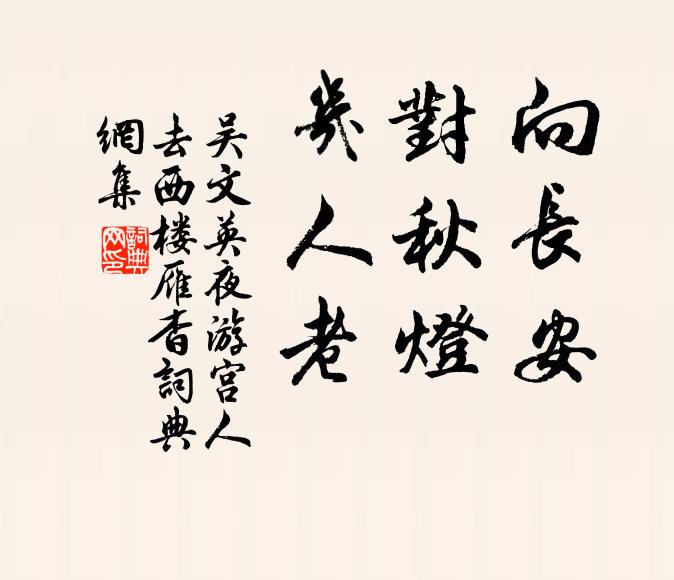 向長安
對秋燈
幾人老
吴文英夜游宫人
去西楼雁杳詞典
網集
詞典
网印